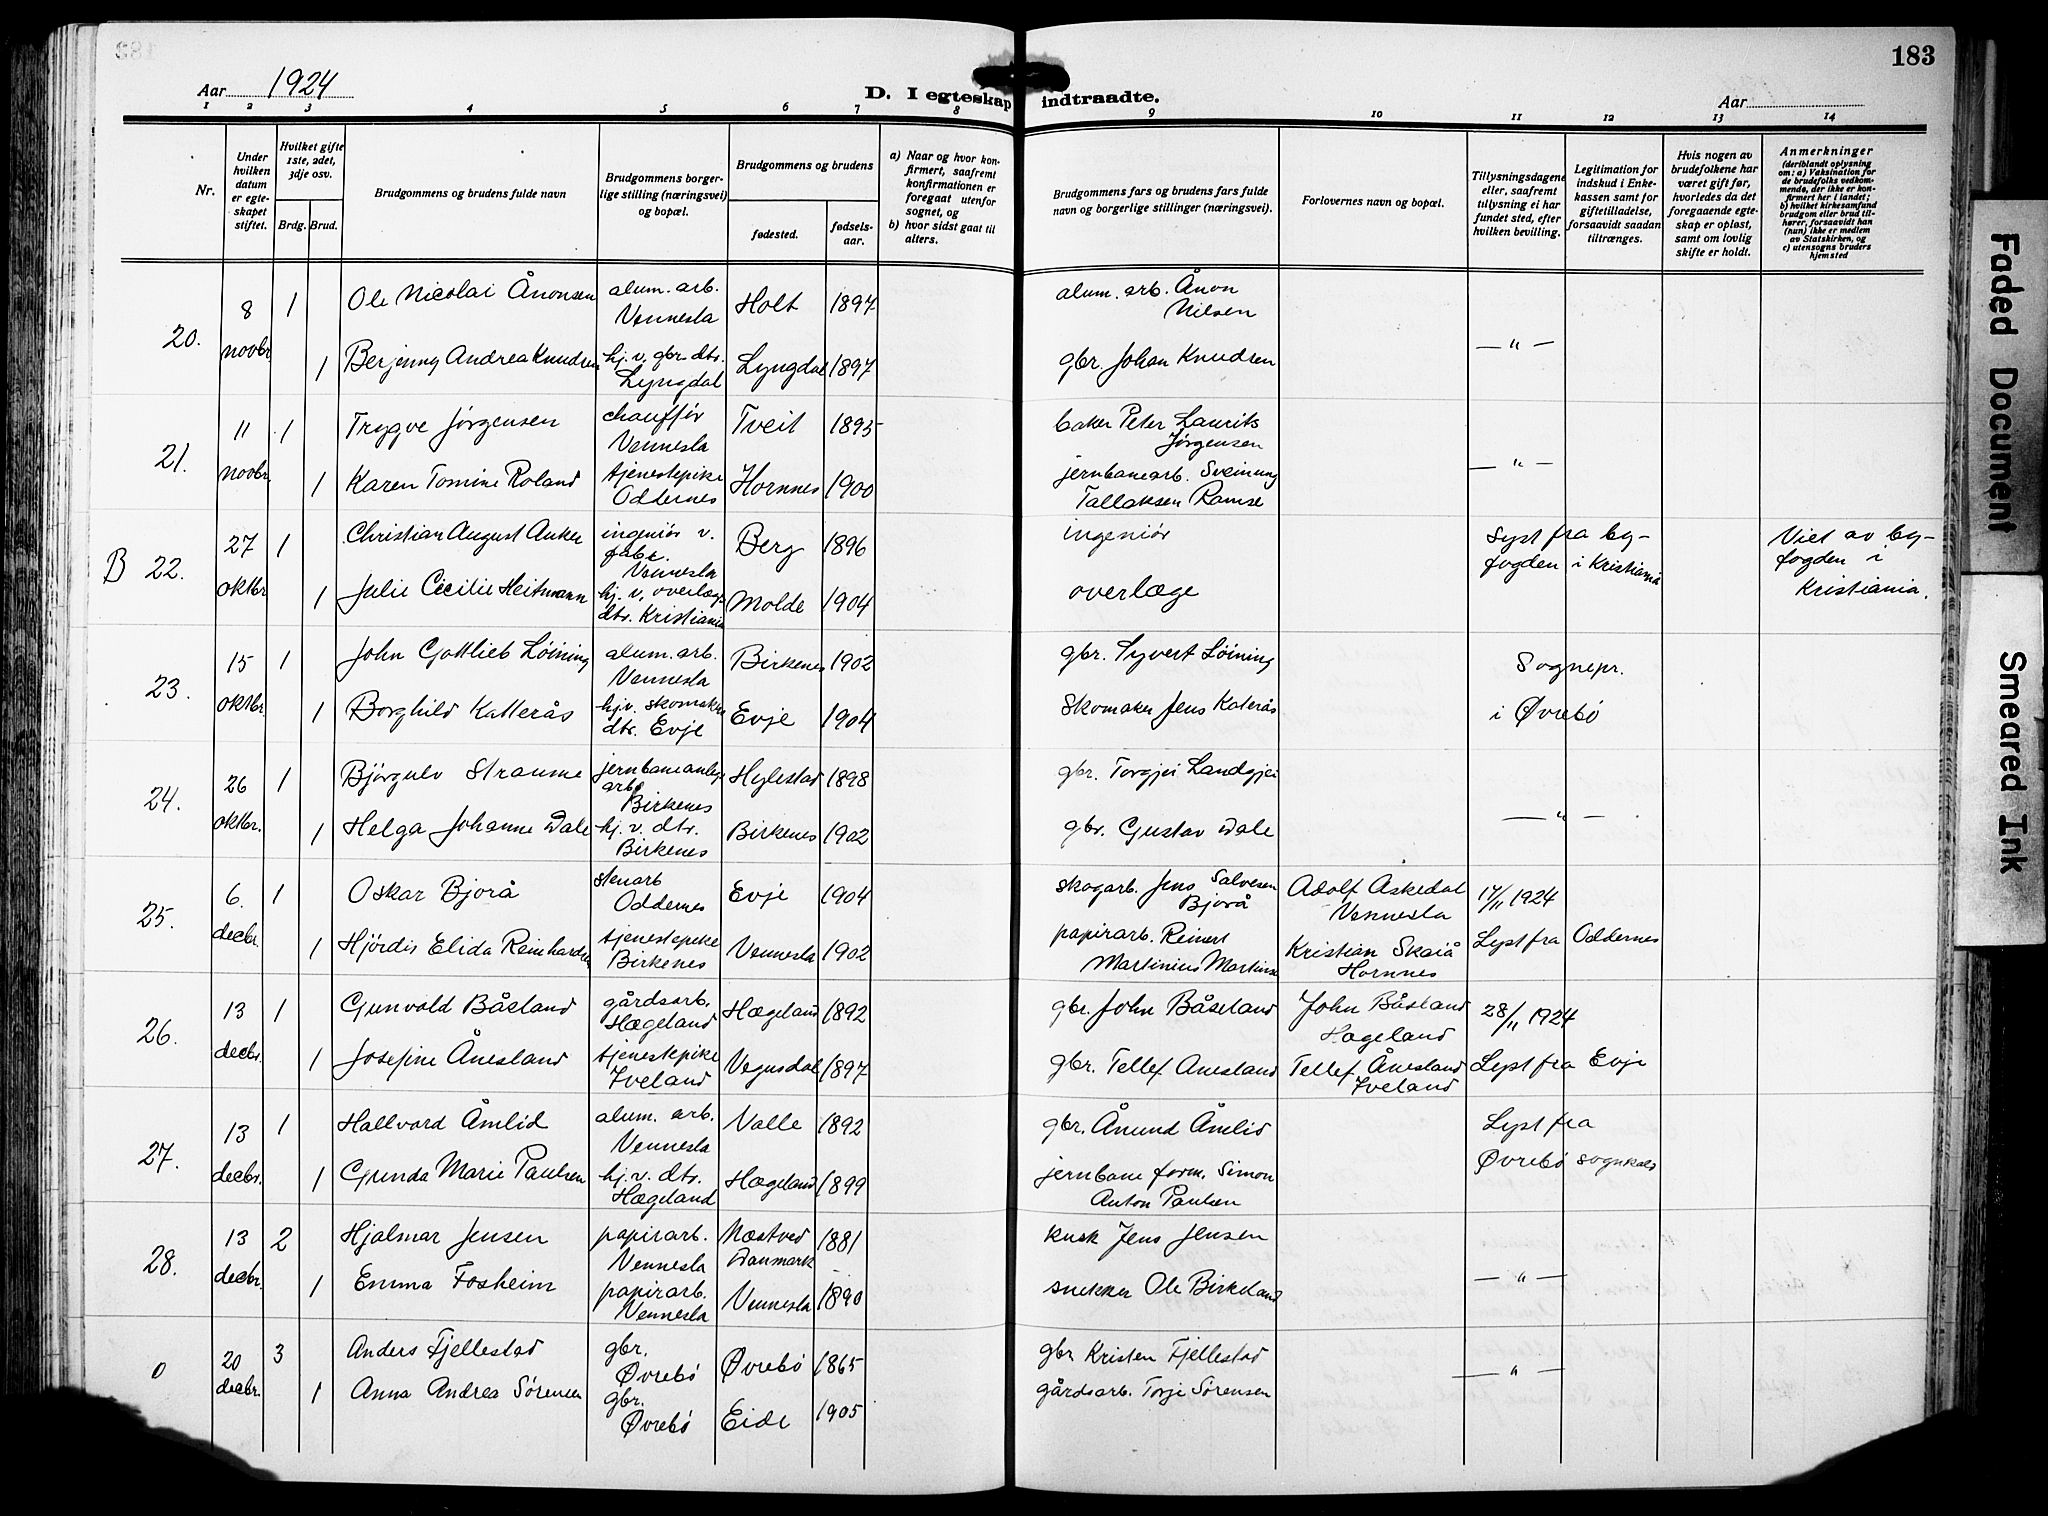 183
Aar 1924
D. I egteskap indtraadte.
Aar
1 2 3 4 5 6 7 8 9 10 11 12 13 14
Nr.
Under hvilken datum er egteskapet stiftet.
Hvilket gifte 1ste, 2det, 3dje osv.
Brdg. Brud.
Brudgommens og brudens fulde navn
Brudgommens borgerlige stilling (næringsvei) og bopæl.
Brudgommens og brudens
fødested.
fødselsaar.
a) Naar og hvor konfirmert, saafremt konfirmationen er foregaat utenfor sognet, og
b) hvor sidst gaat til alters.
Brudgommens fars og brudens fars fulde navn og borgerlige stillinger (næringsvei).
Forlovernes navn og bopæl.
Tillysningsdagene eller, saafremt tillysning ei har fundet sted, efter hvilken bevilling.
Legitimation for indskud i Enkekassen samt for giftetilladelse, forsaavidt saadan tiltrænges.
Hvis nogen av brudefolkene har været gift før, hvorledes da det foregaaende egteskap er opløst, samt om lovlig skifte er holdt.
Anmerkninger
(deriblandt oplysning om: a) Vaksination for de brudefolks vedkommende, der ikke er konfirmert her i landet;
b) hvilket kirkesamfund brudgom eller brud tilhører, forsaavidt han (hun) ikke er medlem av Statskirken, og
c) utensogns bruders hjemsted
20. 8 novbr. 1 Ole Nicolai Ånonsen alum. arb. Vennesla Holt 1897 alum. arb. Ånon Nilsen
1 Berjinny Andrea Knudsen hj. v. gbr. dtr. Lyngdal Lyngdal 1897 gbr. Johan Knudsen — " —
21. 11 novbr. 1 Trygve Jørgensen chauffør Vennesla Tveit 1895 baker Peter Laurits Jørgensen
1 Karen Tomine Roland tjenestepike Oddernes Hornnes 1900 jernbanearb. Sveinung Tallaksen Ramse — " —
B 22. 27 oktbr 1 Christian August Anker ingeniør v. fabr. Vennesla Berg 1896 ingeniør Lyst fra byfogden i Kristiania Viet av byfogden i Kristiania.
1 Julie Cecilie Heitmann hj. v. overlæge dtr. Kristiania Molde 1904 overlæge
23. 15 oktbr. 1 John Gottlieb Løining alum. arb. Vennesla Birkenes 1902 gbr. Syvert Løining Sognepr. i Øvrebø
1 Borghild Katterås hj.v. skomakr. dtr. Evje Evje 1904 Skomaker Jens Katerås
24. 26 oktbr. 1 Bjørgulv Straume jernbaneanlegs arb. Birkenes Hylestad 1898 gbr. Torgjei Landgjei
1 Helga Johanne Dale hj. v. dtr. Birkenes Birkenes 1902 gbr. Gustav Dale — " —
25. 6. decbr. 1 Oskar Bjorå stenarb Oddernes Evje 1904 skogarb. Jens Salvesen Bjorå Adolf Askedal Vennesla 17/11 1924
1 Hjørdis Elida Reinhardsen tjenestepike Birkenes Vennesla 1902 papirarb. Reinert Martinius Martinsen Kristian Skaiå Hornnes Lyst fra Oddernes
26. 13 decbr. 1 Gunvald Båsland gårdsarb. Hægeland Hægeland 1892 gbr. John Båseland John Båsland Hægeland 28/11 1924
1 Josefine Ånesland tjenestepike Iveland Vegusdal 1897 gbr. Tellef Anesland Tellef Ånesland Iveland Lyst fra Evje
27. 13 decbr. 1 Hallvard Åmlid alum. arb. Vennesla Valle 1892 gbr. Ånund Åmlid Lyst fra Øvrebø sognekald
1 Gunda Marie Paulsen hj. v. dtr. Hægeland Hægeland 1899 jernbane form. Simon Anton Paulsen
28. 13 decbr. 2 Hjalmar Jensen papirarb. Vennesla Næstved Danmark 1881 kusk Jens Jensen
1 Emma Fosheim papirarb. Vennesla Vennesla 1890 snekker Ole Birkeland — " —
0 20 decbr. 3 Anders Fjellestad gbr. Øvrebø Øvrebø 1865 gbr Kristen Fjellestad
1 Anna Andrea Sørensen gbr. Øvrebø Eide 1905 gårdsarb. Torje Sørensen — " —
Faded Document
Smeared Ink